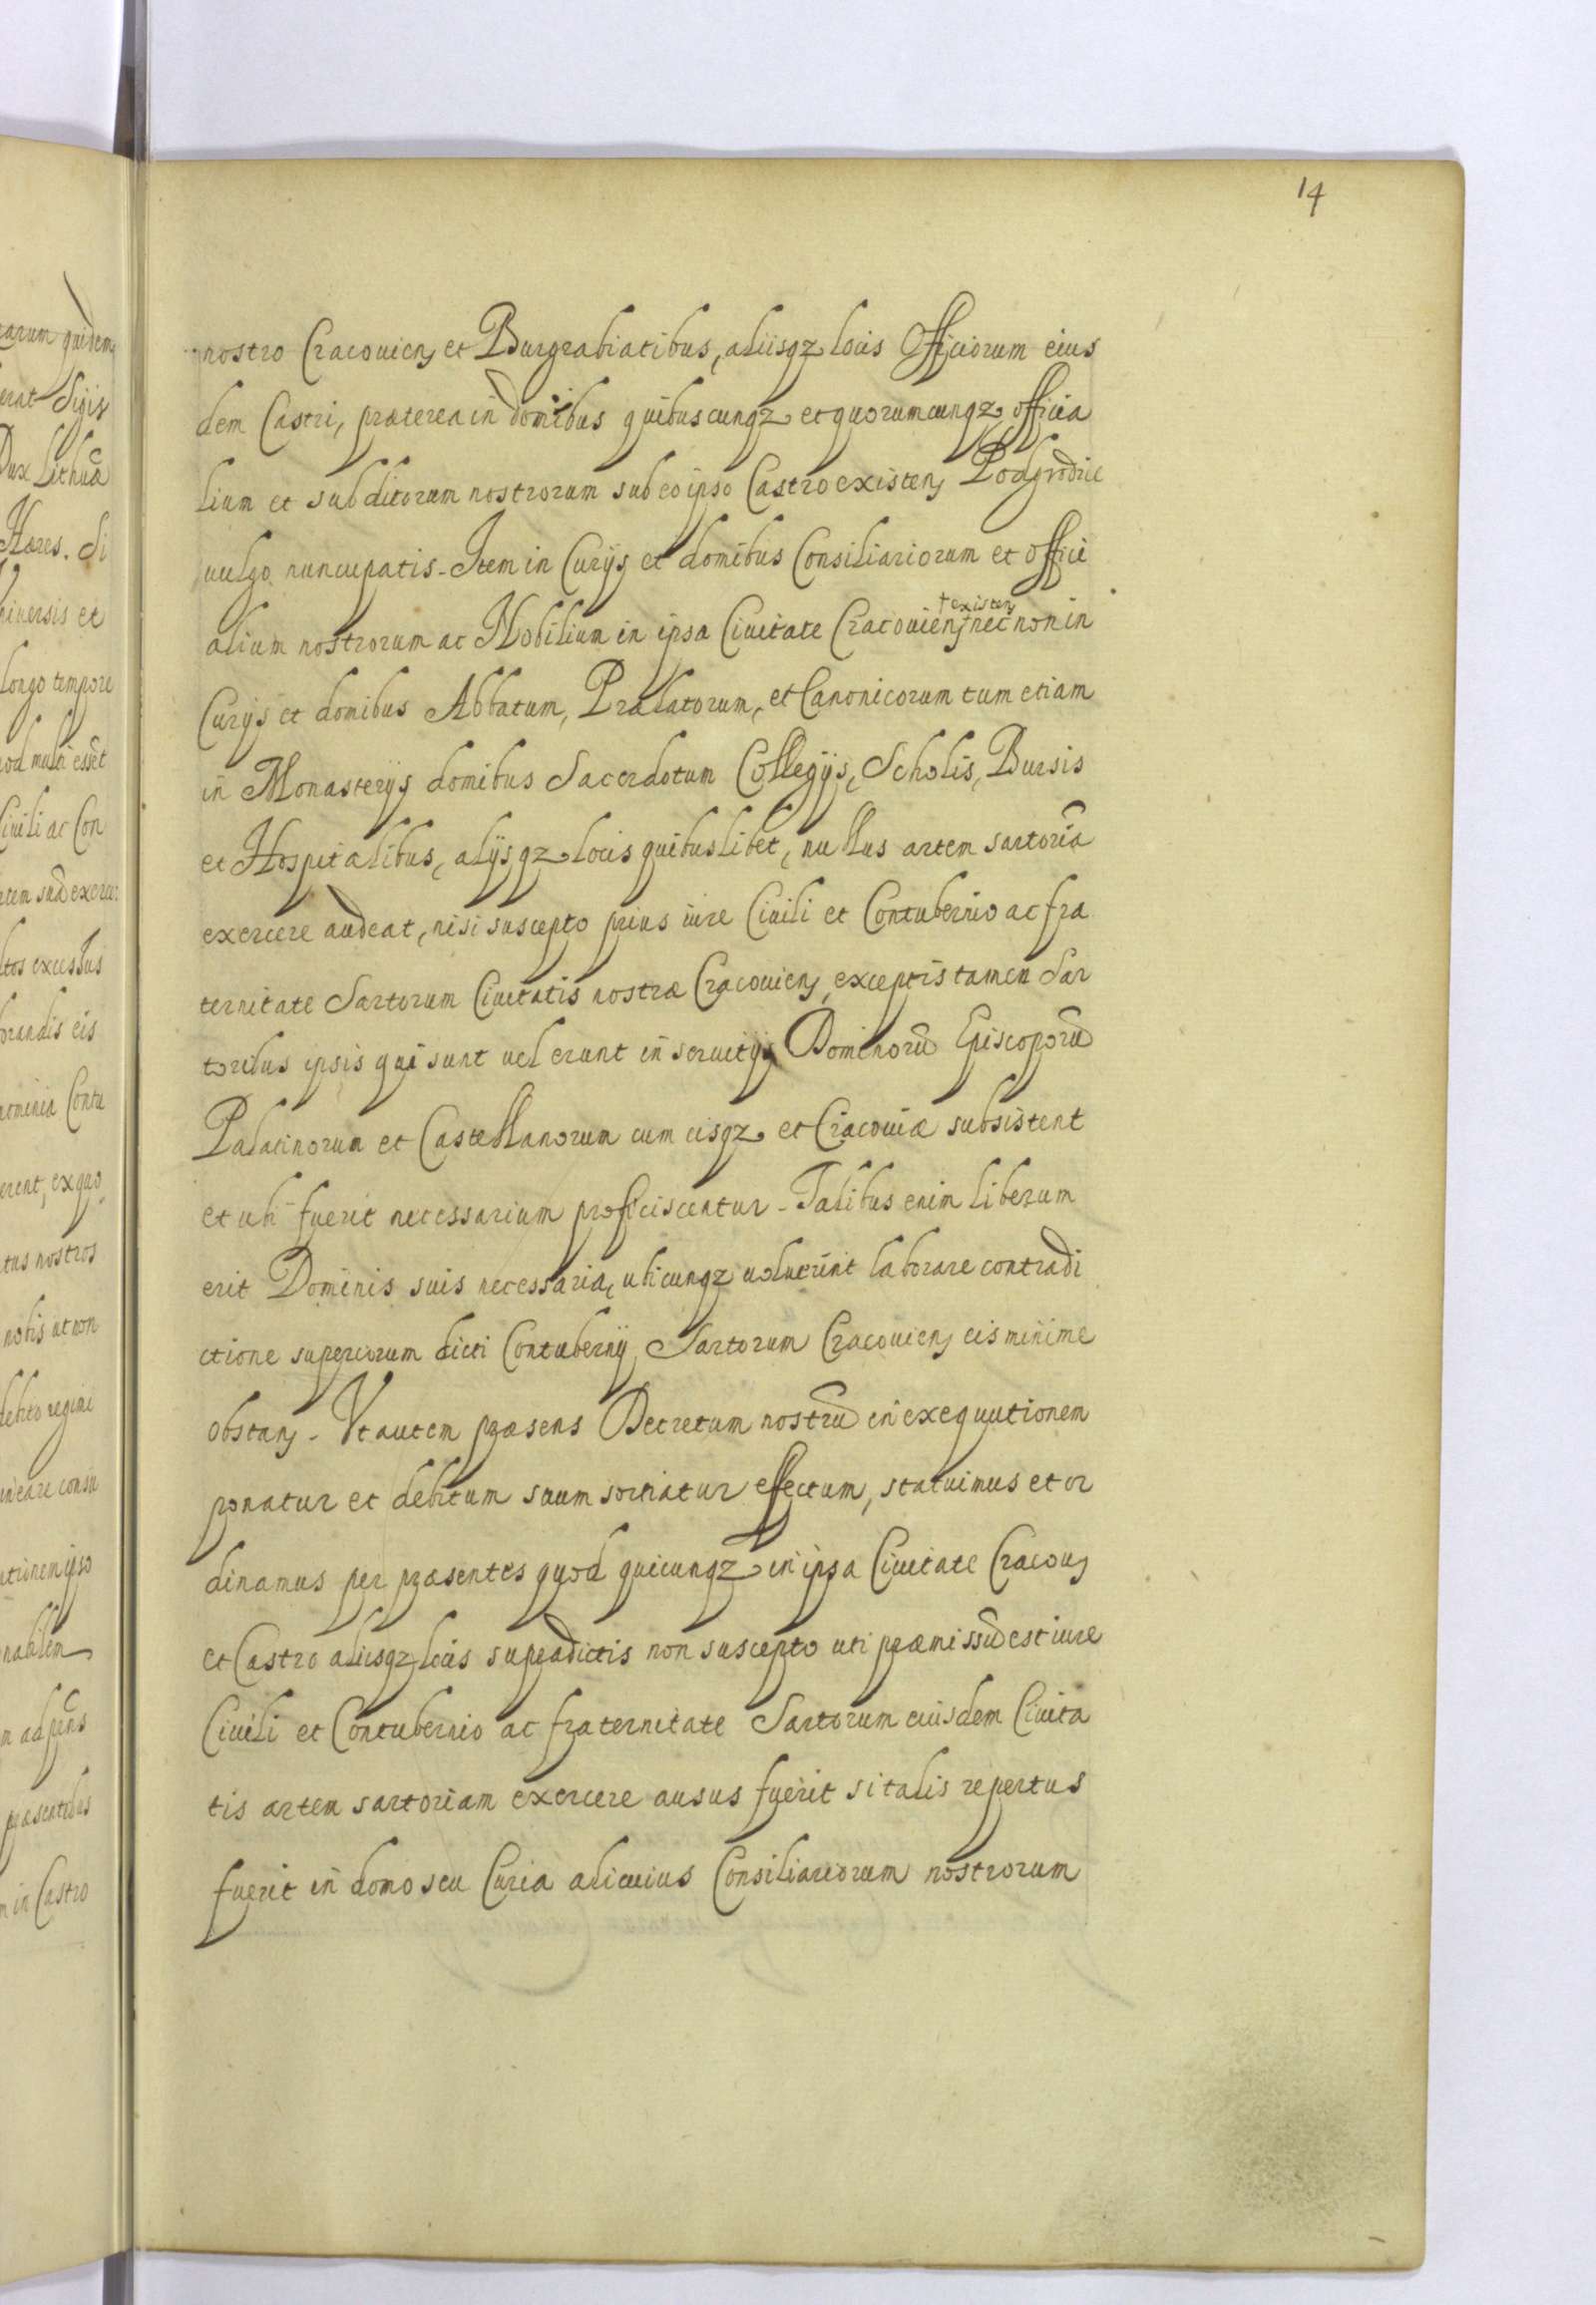 14
nostro Cracouien et Burgrabiatibus, aliisqz locis Officiorum eius
dem Castri, praeterea in domibus quibuscunqz et quorumcunqz officia
lium et subditorum nostrorum sub eo ipso Castro existen Podgrodzie
uulgo nuncupatis. Item in Curijs et domibus Consiliariorum et offici
† existen
alium nostrorum ac Nobilium in ipsa Ciuitate Cracouien † nec non in
Curijs et domibus Abbatum, Praelatorum, et Canonicorum tum etiam
in Monasterijs domibus Sacerdotum Collegijs, Scholis, Bursis
et Hospitalibus, alijsqz locis quibuslibet, nullus artem sartoriā
exercere audeat, nisi suscepto prius iure Ciuili et Contubernio ac fra
ternitate Sartorum Ciuitatis nostrae Cracouien, exceptis tamen Sar
toribus ipsis qui sunt uel erunt in seruitijs Dominorū Episcoporū
Palatinorum et Castellanorum cum eisqz et Cracouiae subsistent
et ubi fuerit necessarium proficiscentur. Talibus enim liberum
erit Dominis suis necessaria, ubicunqz uoluerint laborare contradi
ctione superiorum dicti Contubernij Sartorum Cracouien eis minime
obstan. Ut autem praesens Decretum nostrū in exequutionem
ponatur et debitum suum sortiatur effectum, statuimus et or
dinamus per praesentes quod quicunqz in ipsa Ciuitate Cracou
et Castro aliisqz locis supradictis non suscepto uti praemissū est iure
Ciuili et Contubernio ac fraternitate Sartorum eiusdem Ciuita
tis artem sartoriam exercere ausus fuerit si talis repertus
fuerit in domo seu Curia alicuius Consiliariorum nostrorum